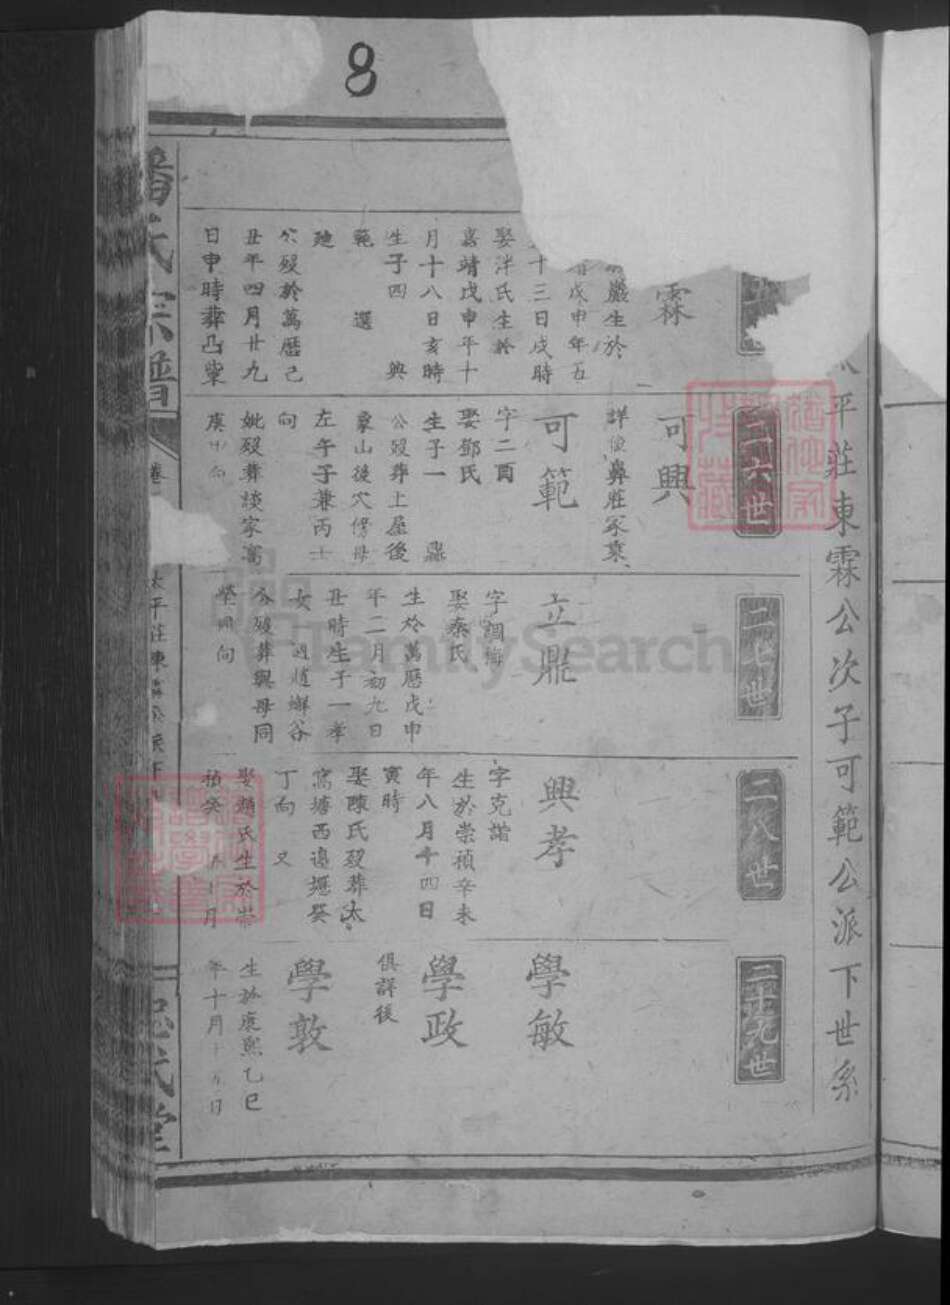 8
平莊東霖公次子可範公派下世系
霖
嚴生於
戊申年五
十三日戌時
娶洋氏生於
嘉靖戊申年十
月十八日亥時
生子四 興
範 選
穴歿於萬曆己
丑年四月廿九
日申時葬凸柴
二六世
可興
詳像鼻莊冢乘
可範
字二酉
娶鄧氏
生子一 鼎
公歿葬土屋後
象山後穴傍母
左午子兼丙壬
向
妣歿葬談家窩
庚
二七世
立鼎
字調梅
娶秦氏
生於萬曆戊申
年二月初九日
丑時生子一孝
女
公歿葬與母同
塋同向
二八世
興孝
字克諧
生於崇禎辛未
年八月十四日
寅時
娶陳氏歿葬太
窩塘西邊堰癸
丁向 又
娶顏氏生於崇
禎癸 月
二十九世
學敏
學政
俱詳後
學敦
生於康熙乙巳
年十月十五日
潘氏宗譜
卷
太平莊東
FamilySearch